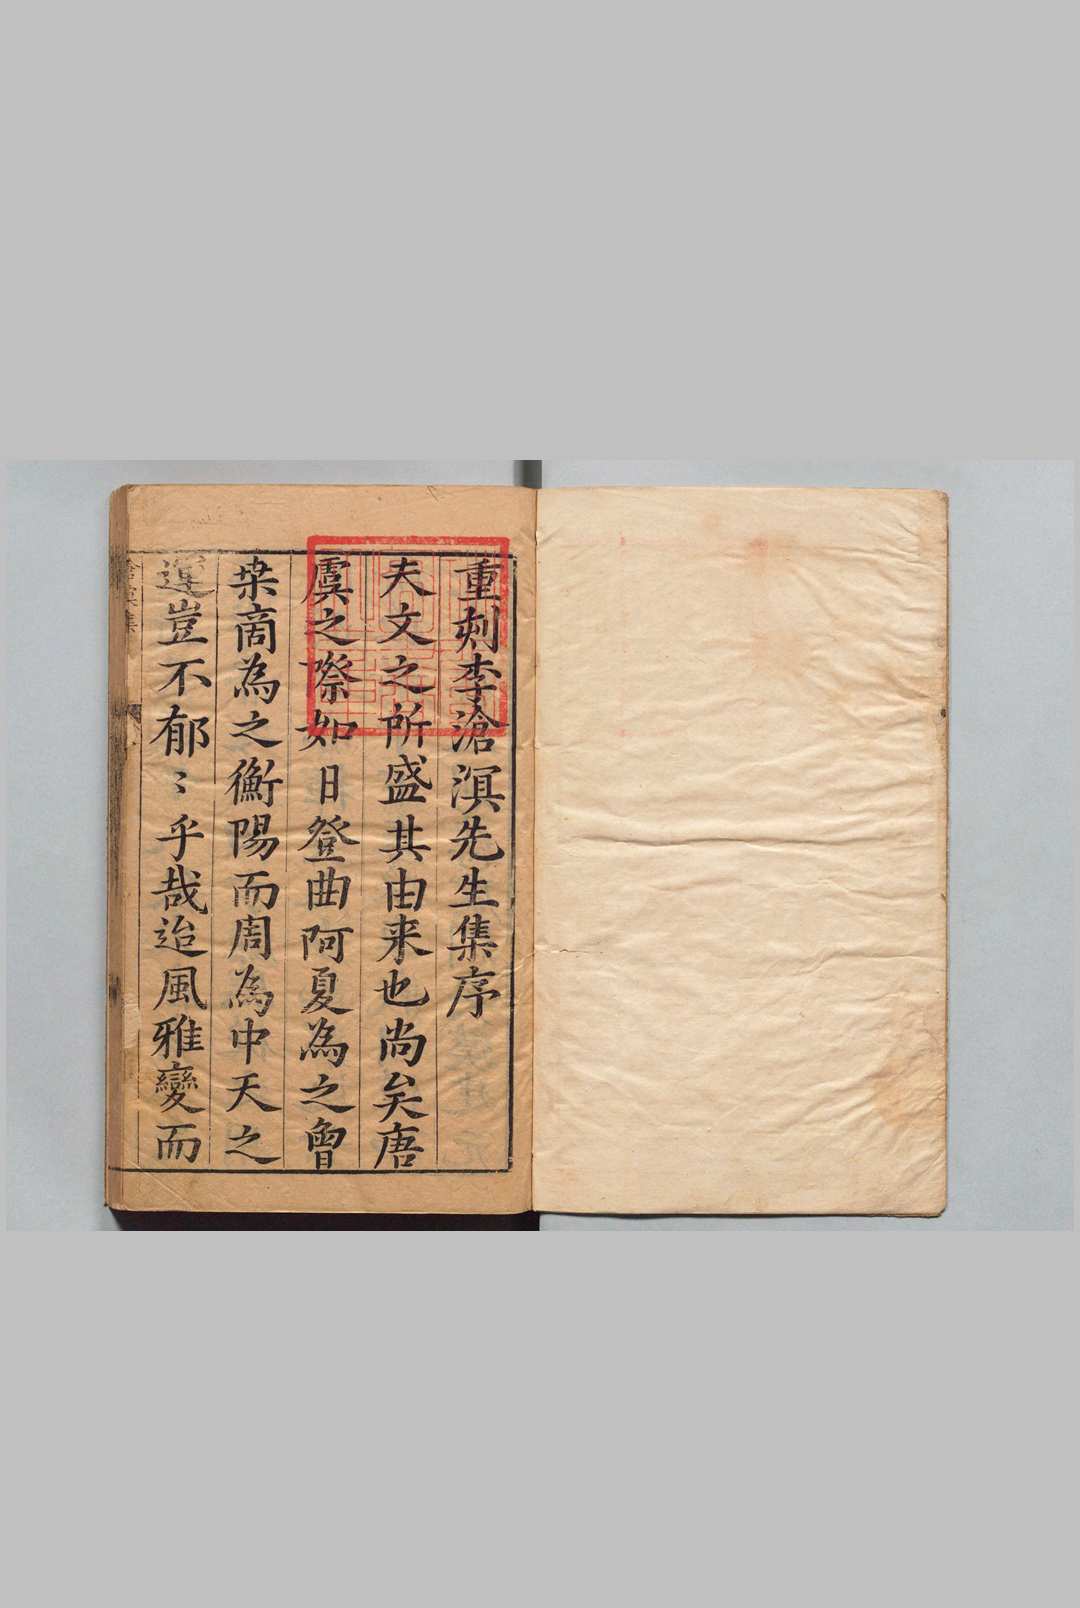 重刻李滄溟先生集序
夫文之所盛其由来也尚矣唐
虞之際如日登曲阿夏為之曾
桒商為之衡陽而周為中天之
運豈不郁〻乎哉迨風雅變而
滄溟集